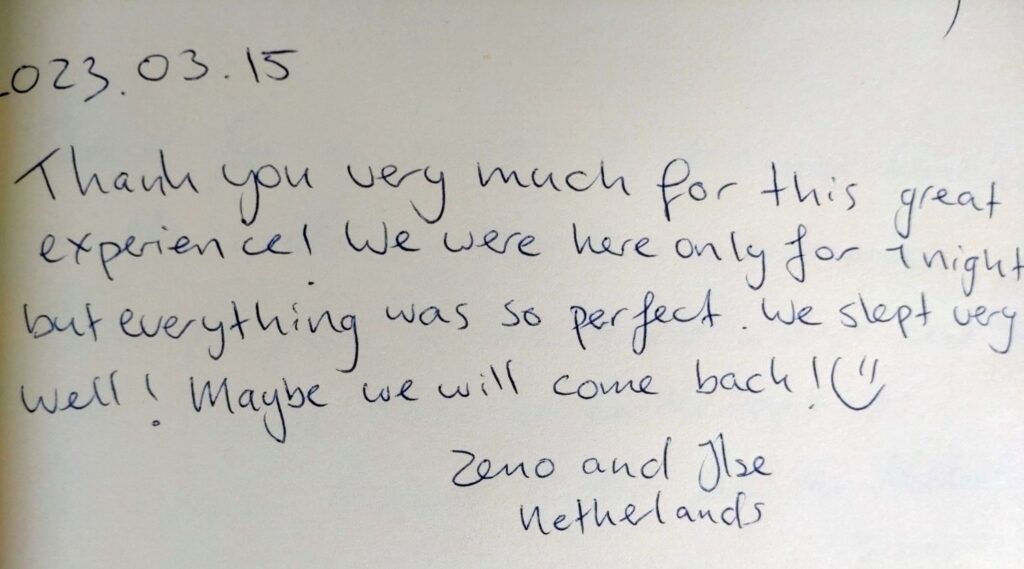 2023.03.15
Thank you very much for this great
experience! We were here only for 1 night
but everything was so perfect. We slept very
well! Maybe we will come back! :)
Zeno and Ilse
Netherlands